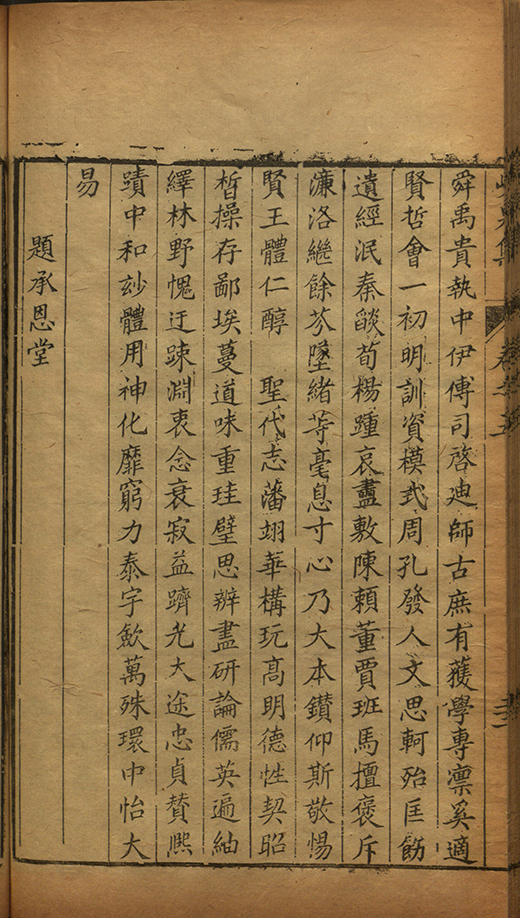 舜禹貴執中伊傅司啓迪師古庶有獲學專凛奚適
賢哲會一初明訓資模式周孔發人文思軻殆匡飭
遺經泯秦燄荀楊踵哀盡敷陳賴董賈班馬擅褒斥
濂洛繼餘芬墜緒等毫息寸心乃大本鑚仰斯敬惕
賢王體仁醇　聖代志藩翊華構玩高明德性契昭
晳操存鄙埃蔓道味重珪璧思辨盡研論儒英遍紬
繹林野愧迂踈淵衷念衰寂益躋光大途忠貞賛熈
蹟中和玅體用神化靡窮力泰宇歛萬殊環中怡大
易
題承恩堂